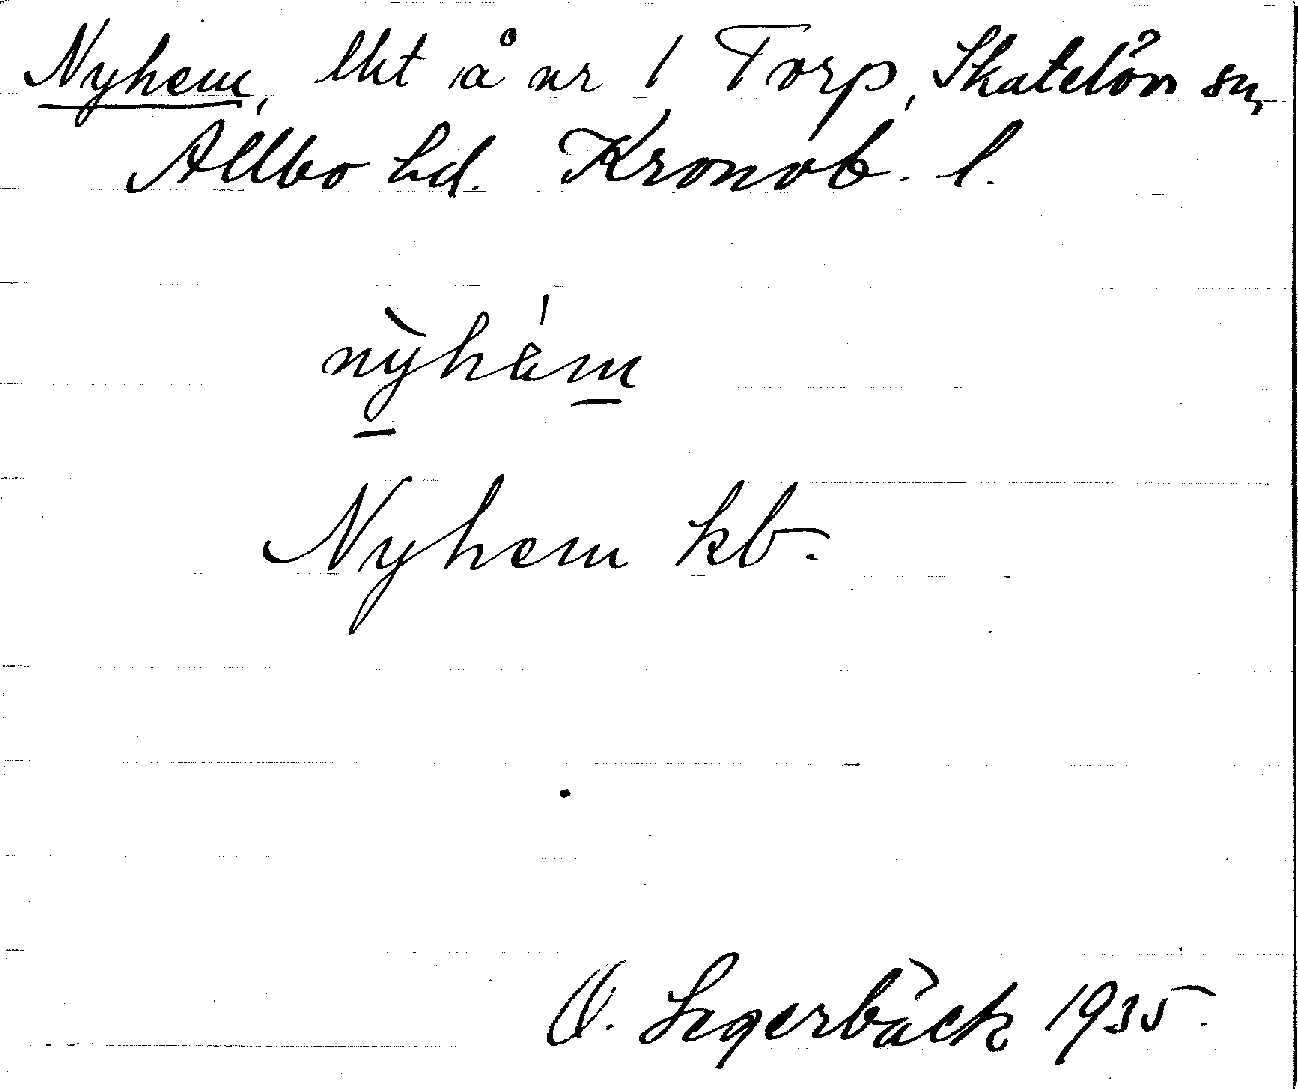 Nyhem, lht å nr 1 Torp, Skatelöv sn,
Allbo hd. Kronob. l.
nỳhém
Nyhem kb.
O. Segerbäck 1935.